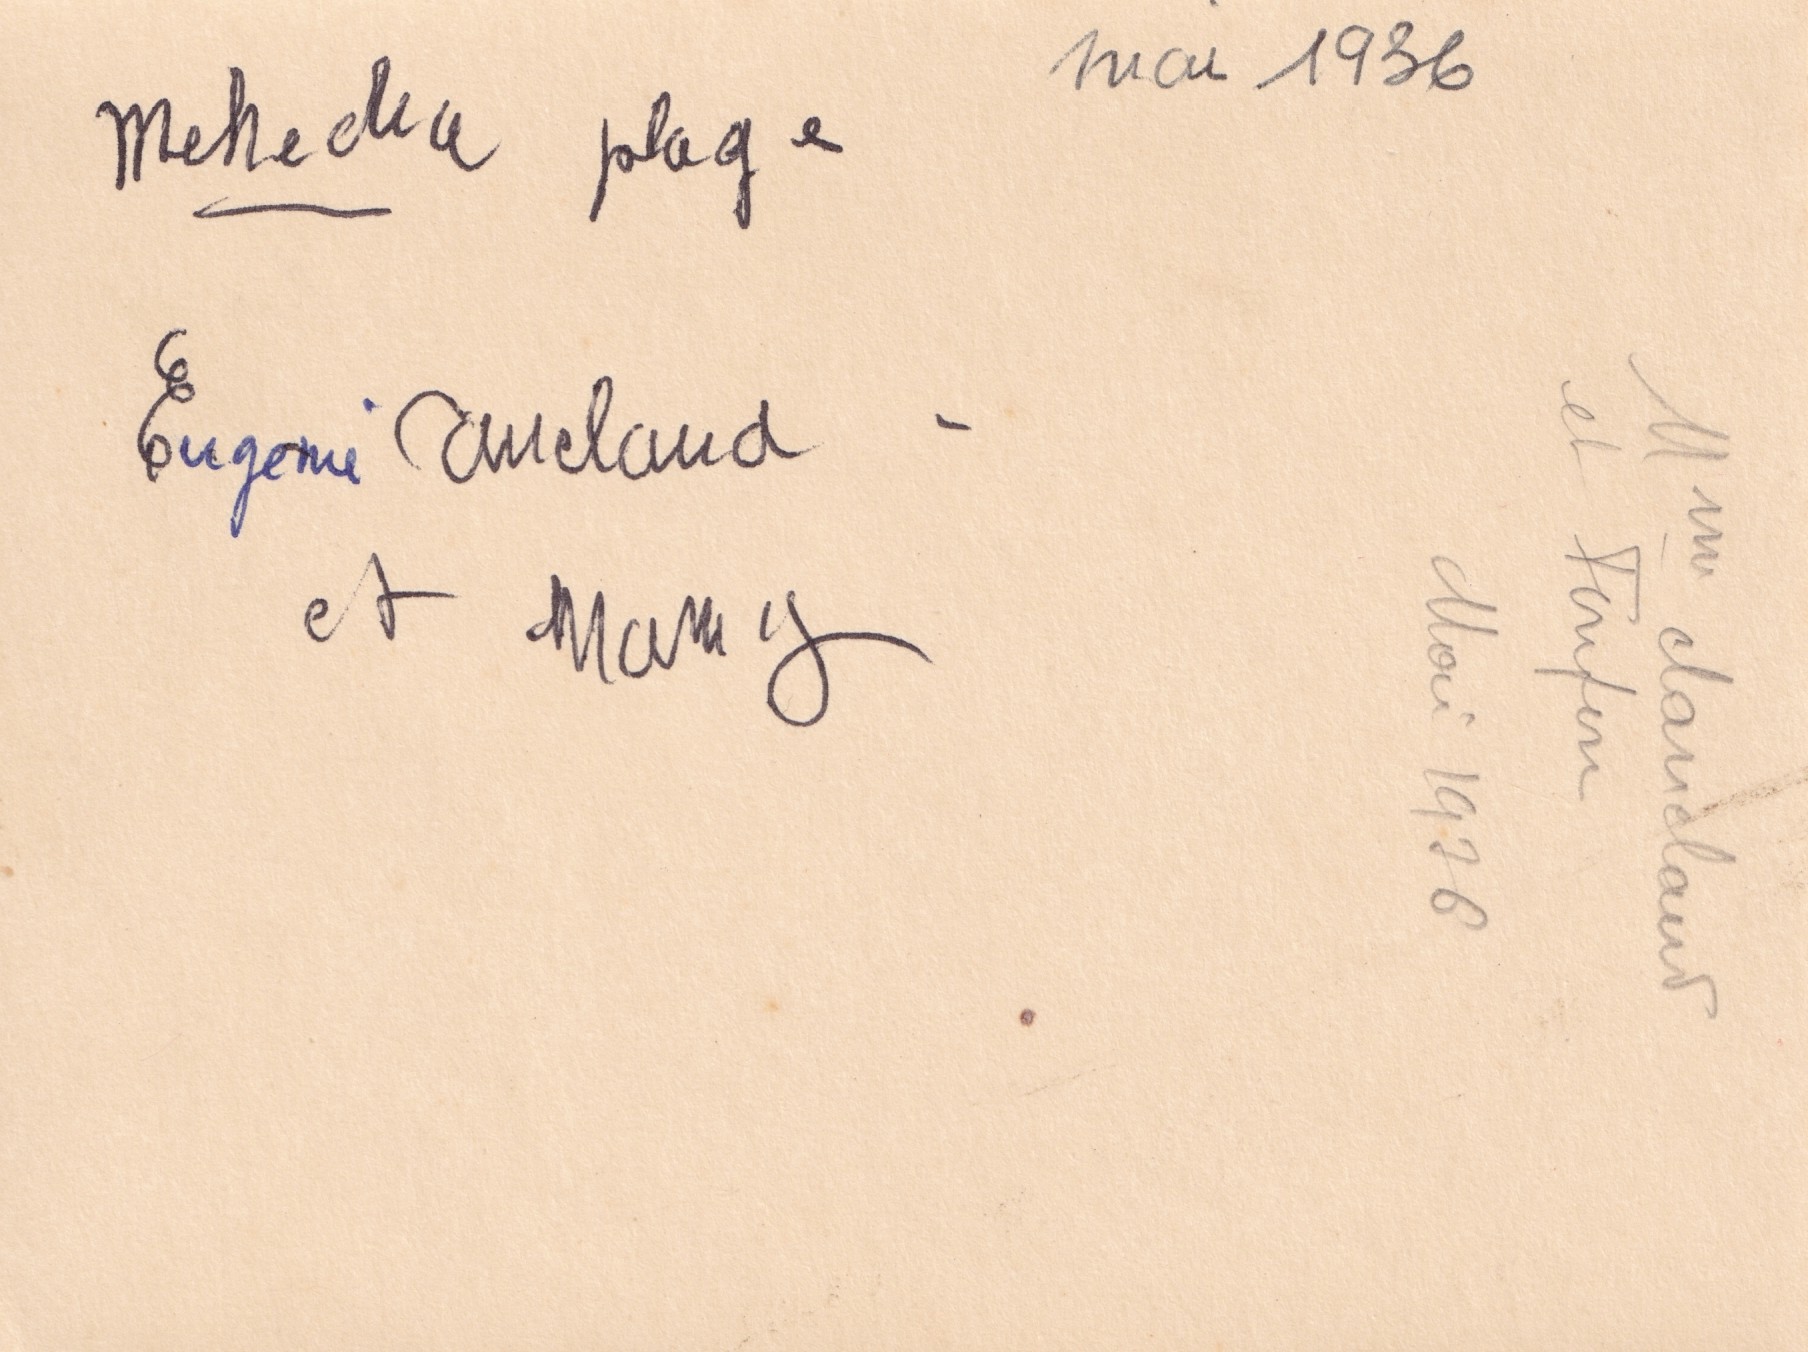 mai 1936
Mehedia plage
Eugenie Canclaud -
et Mamy
Mme Canclaud
et Fonfon
Mai 1936